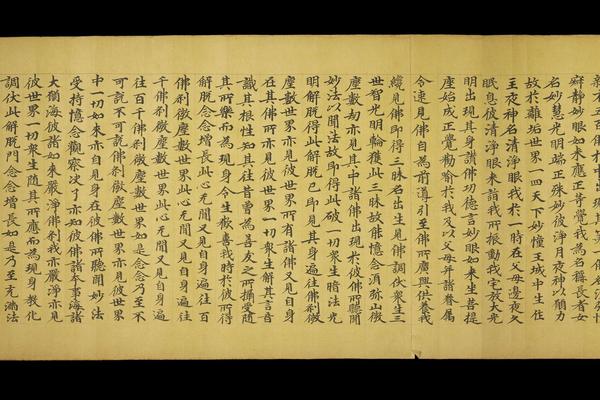 寂静妙眼如來應正等覺我為名稱長者女
名妙慧光明端正殊妙彼淨月夜神以願力
故於離垢世界一四天下妙幢王城中生住
主夜神名清淨眼我於一時在父母邊夜久
眠息彼清淨眼來詣我所振動我宅放大光
明出現其身讚佛功德言妙眼如來坐菩提
座始成正覺勸喻於我及以父母并諸眷属
令速見佛自為前導引至佛所廣興供養我
纔見佛即得三昧名出生見佛調伏衆生三
世智光明輪獲此三昧故能憶念須弥山微
塵數劫亦見其中諸佛出現於彼佛所聽聞
妙法以聞法故即得此破一切衆生暗法光
明解脫得此解脫已即見其身遍往佛剎微
塵數世界亦見彼世界所有諸佛又見自身
在其佛所亦見彼世界一切衆生解其言音
識其根性知其往昔曾為善友之所攝受隨
其所樂而為現身令生歡喜我時於彼所得
解脫念念增長此心无間又見自身遍往百
佛剎微塵數世界此心无間又見自身遍往
千佛剎微塵數世界此心无間又見自身遍
往百千佛剎微塵數世界如是念念乃至不
可說不可說佛剎微塵數世界亦見彼世界
中一切如來亦自見身在彼佛所聽聞妙法
受持憶念觀察決了亦知彼佛諸本事海諸
大願海彼諸如來嚴淨佛剎我亦嚴淨亦見
彼世界一切衆生隨其所應而為現身教化
調伏此解脫門念念增長如是乃至充滿法